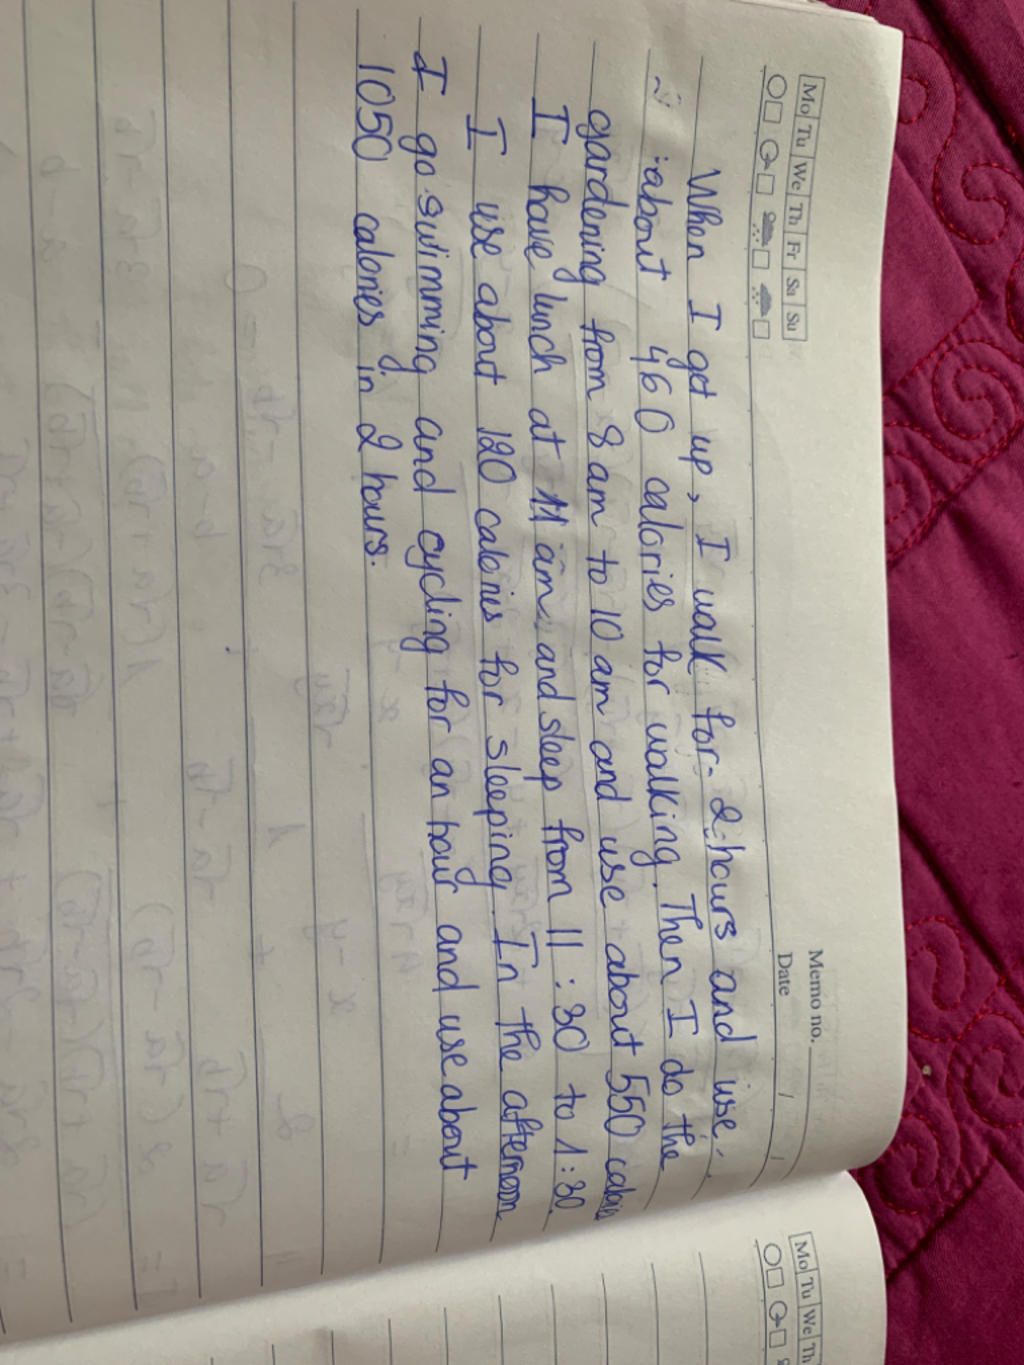 Mo Tu We Th Fr Sa Su
Memo no.
Date / /
When I get up, I walk for 2 hours and use
about 460 calories for walking. Then I do the
gardening from 8 am to 10 am and use about 550
I have lunch at 11 am and sleep from 11:30 to 1:30.
I use about 120 calories for sleeping. In the afternoon
I go swimming and cycling for an hour and use about
1050 calories in 2 hours.
Mo Tu We Th